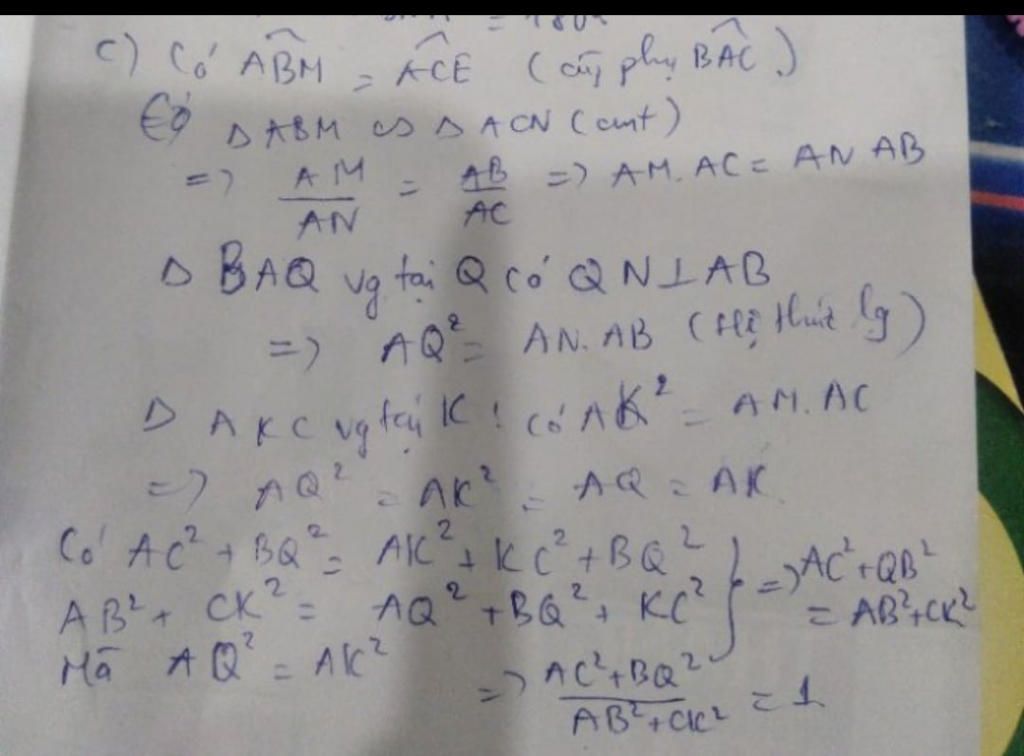 = 180°
c) Có ABM = ACE (cùng phụ BAC)
Có Δ ABM ∽ Δ ACN (cmt)
=> AM/AN = AB/AC => AM. AC = AN AB
Δ BAQ vg tại Q có QN⊥AB
=> AQ² = AN. AB (Hệ thức lg)
Δ AKC vg tại K: có AK² = AM. AC
=> AQ² = AK² = AQ = AK
Có AC² + BQ² = AK² + KC² + BQ²
AB² + CK² = AQ² + BQ² + KC²
Mà AQ² = AK²
} => AC² + QB²
= AB² + CK²
=> AC² + BQ² / AB² + CK² = 1